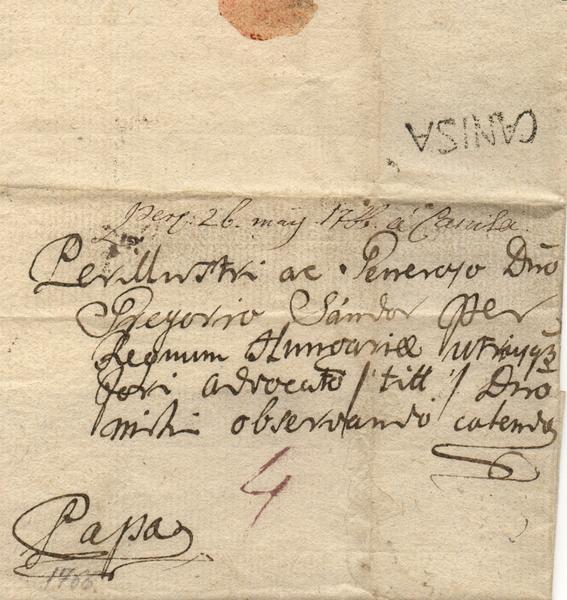 CANISA
26. may 1788 á Canisa
Perillustri ac Generoso Dño
Gregorio Sándor per
Regnum Hungariæ utriusqȝ
Fori advocato /titt/ Dño
mihi observando colendo
4
Papa